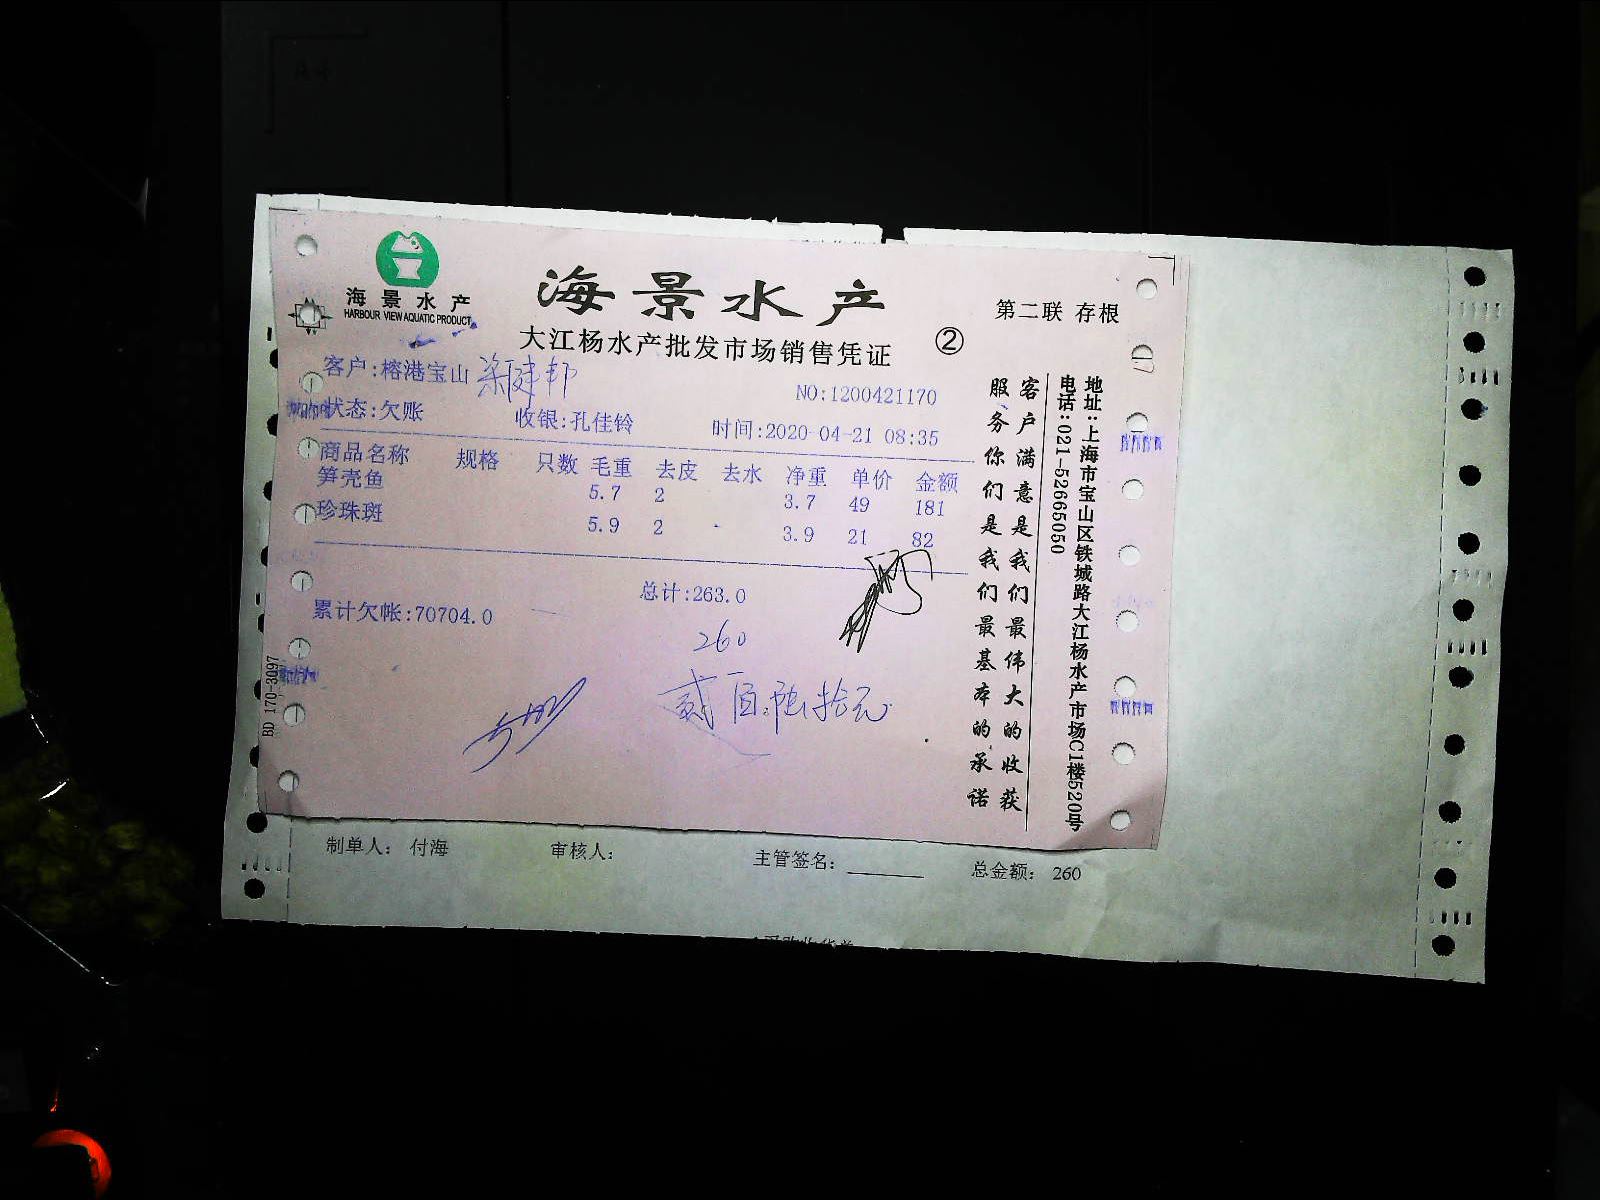 海景水产
HARBOUR VIEW AQUATIC PRODUCT
海景水产
大江杨水产批发市场销售凭证
②
第二联 存根
客户:榕港宝山
NO:1200421170
状态:欠账 收银:孔佳铃 时间:2020-04-21 08:35
商品名称 规格 只数 毛重 去皮 去水 净重 单价 金额
笋壳鱼 5.7 2 3.7 49 181
珍珠斑 5.9 2 3.9 21 82
总计:263.0
累计欠帐:70704.0
260
贰百陆拾元
客户满意是我们最伟大的收获
服务你们是我们最基本的承诺
地址:上海市宝山区铁城路大江杨水产市场C1楼520号
电话:021-52665050
BD 170-3097
制单人: 付海 审核人: 主管签名: 总金额: 260